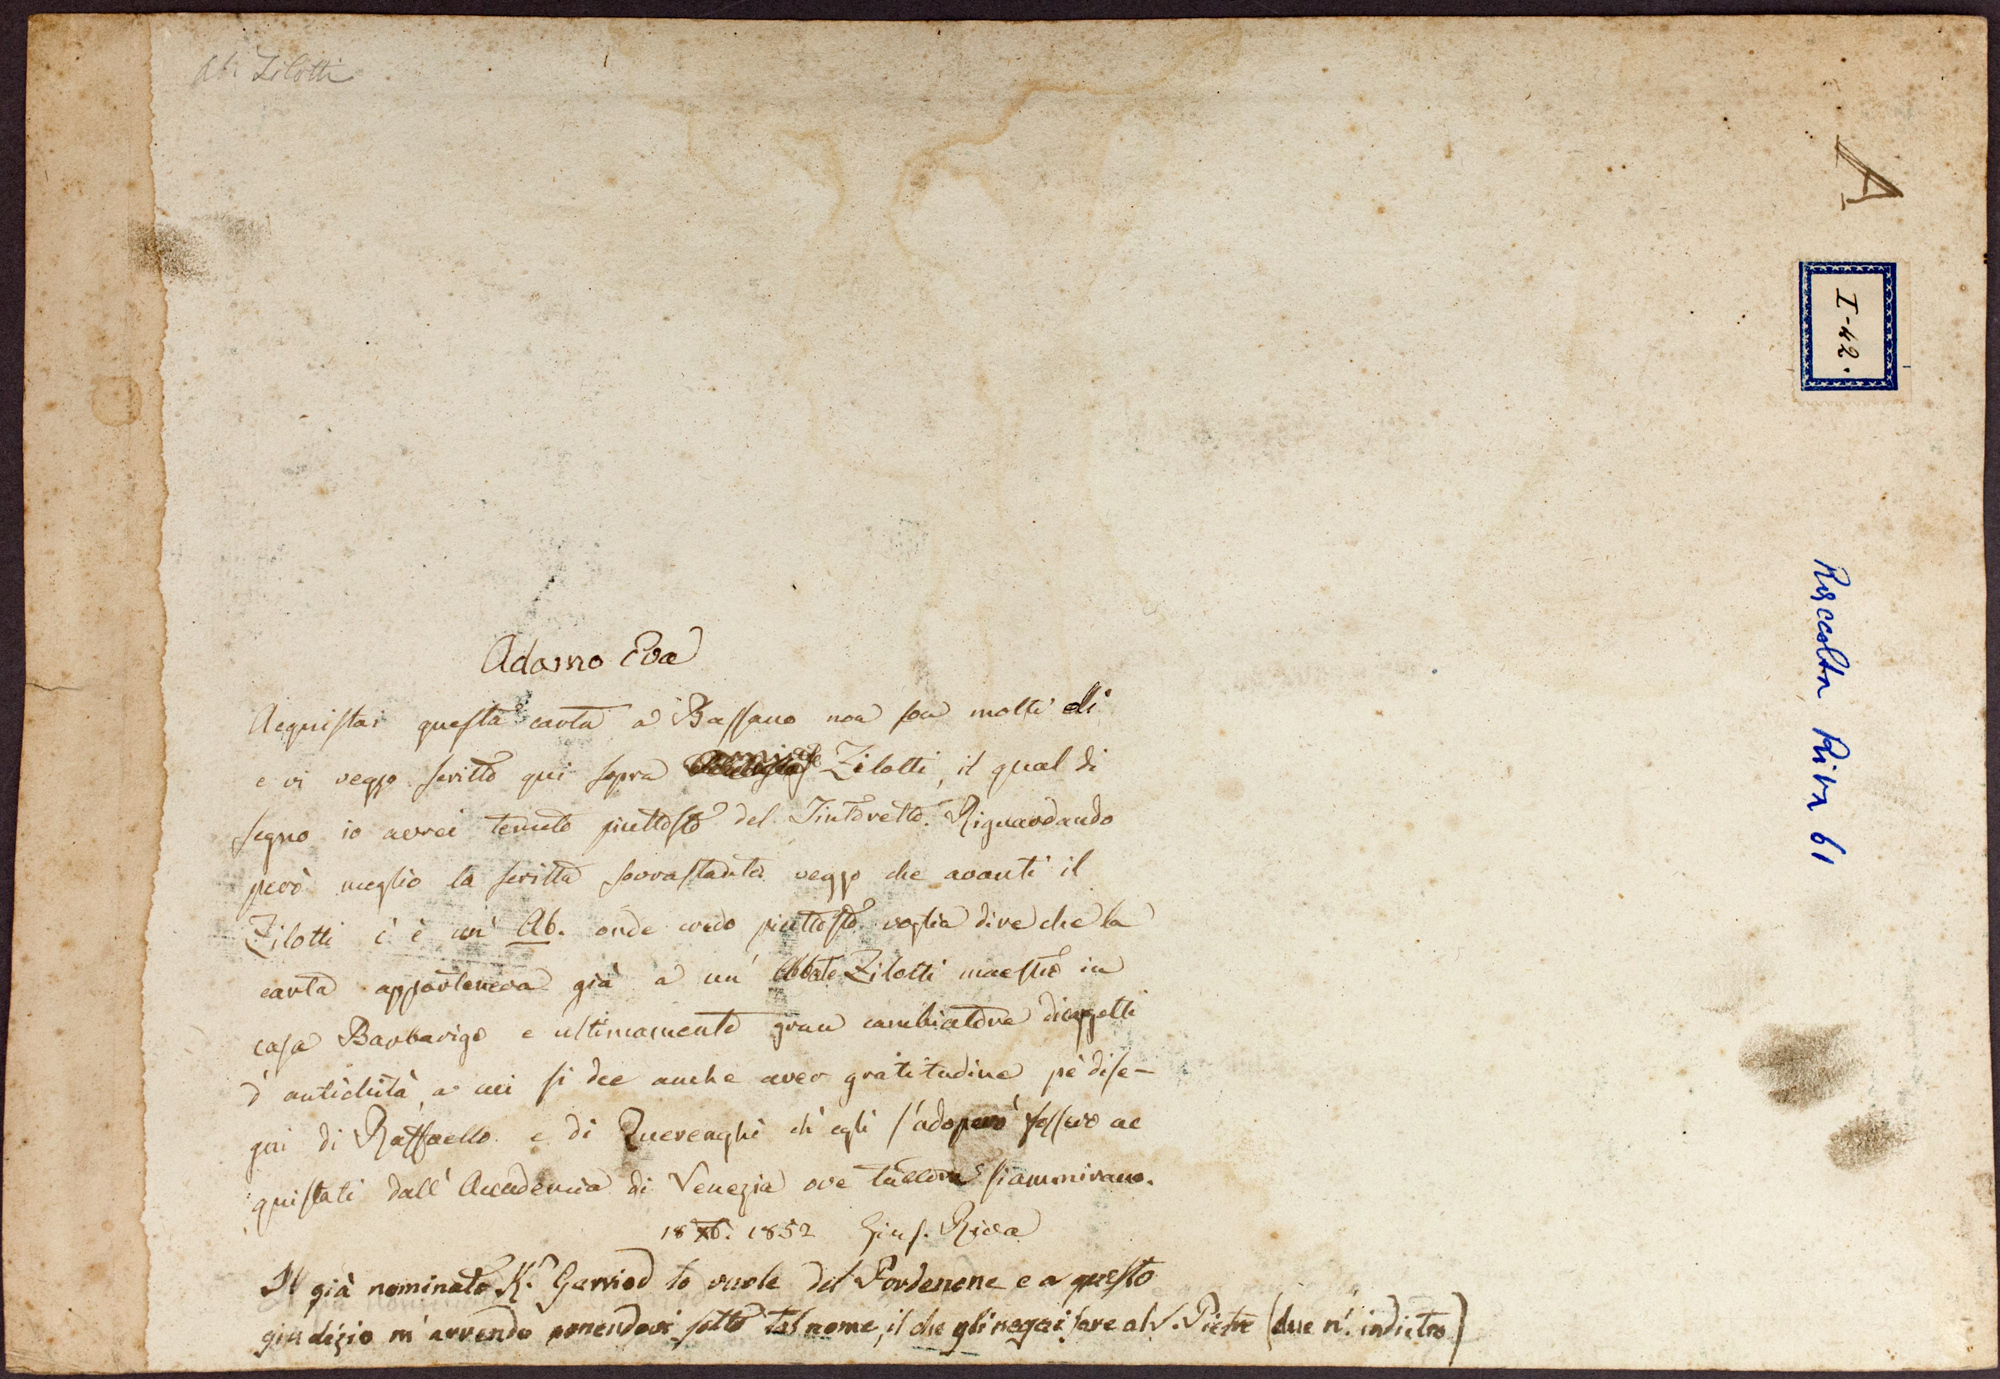 Ab. Zilotti
A
I-42.
Raccolta Riva 61
Adamo Eva
Acquistai questa carta a Bassano non son molti dì
e vi veggo scritto qui sopra Zilotti, il qual di
segno io avrei tenuto piuttosto del Tintoretto. Riguardando
però meglio la scritta sovrastante veggo che avanti il
Zilotti c'è un' Ab. onde credo piuttosto voglia dire che la
carta apparteneva già a un' Abbate Zilotti maestro in
casa Barbarigo e ultimamente gran cambiatore di oggetti
d'antichità, a cui si dee anche aver gratitudine pe' dise-
gni di Raffaello e di Querenghi ch'egli s'adoperò fossero ac
quistati dall' Accademia di Venezia ove tuttora si ammirano.
18 Xb. 1852 Gius. Riva
Il già nominato K.r Garriod lo vuole del Pordenone e a questo
giudizio m'arrendo ponendovi sotto tal nome, il che gli negai fare al S. Pietro (due n.i indietro)